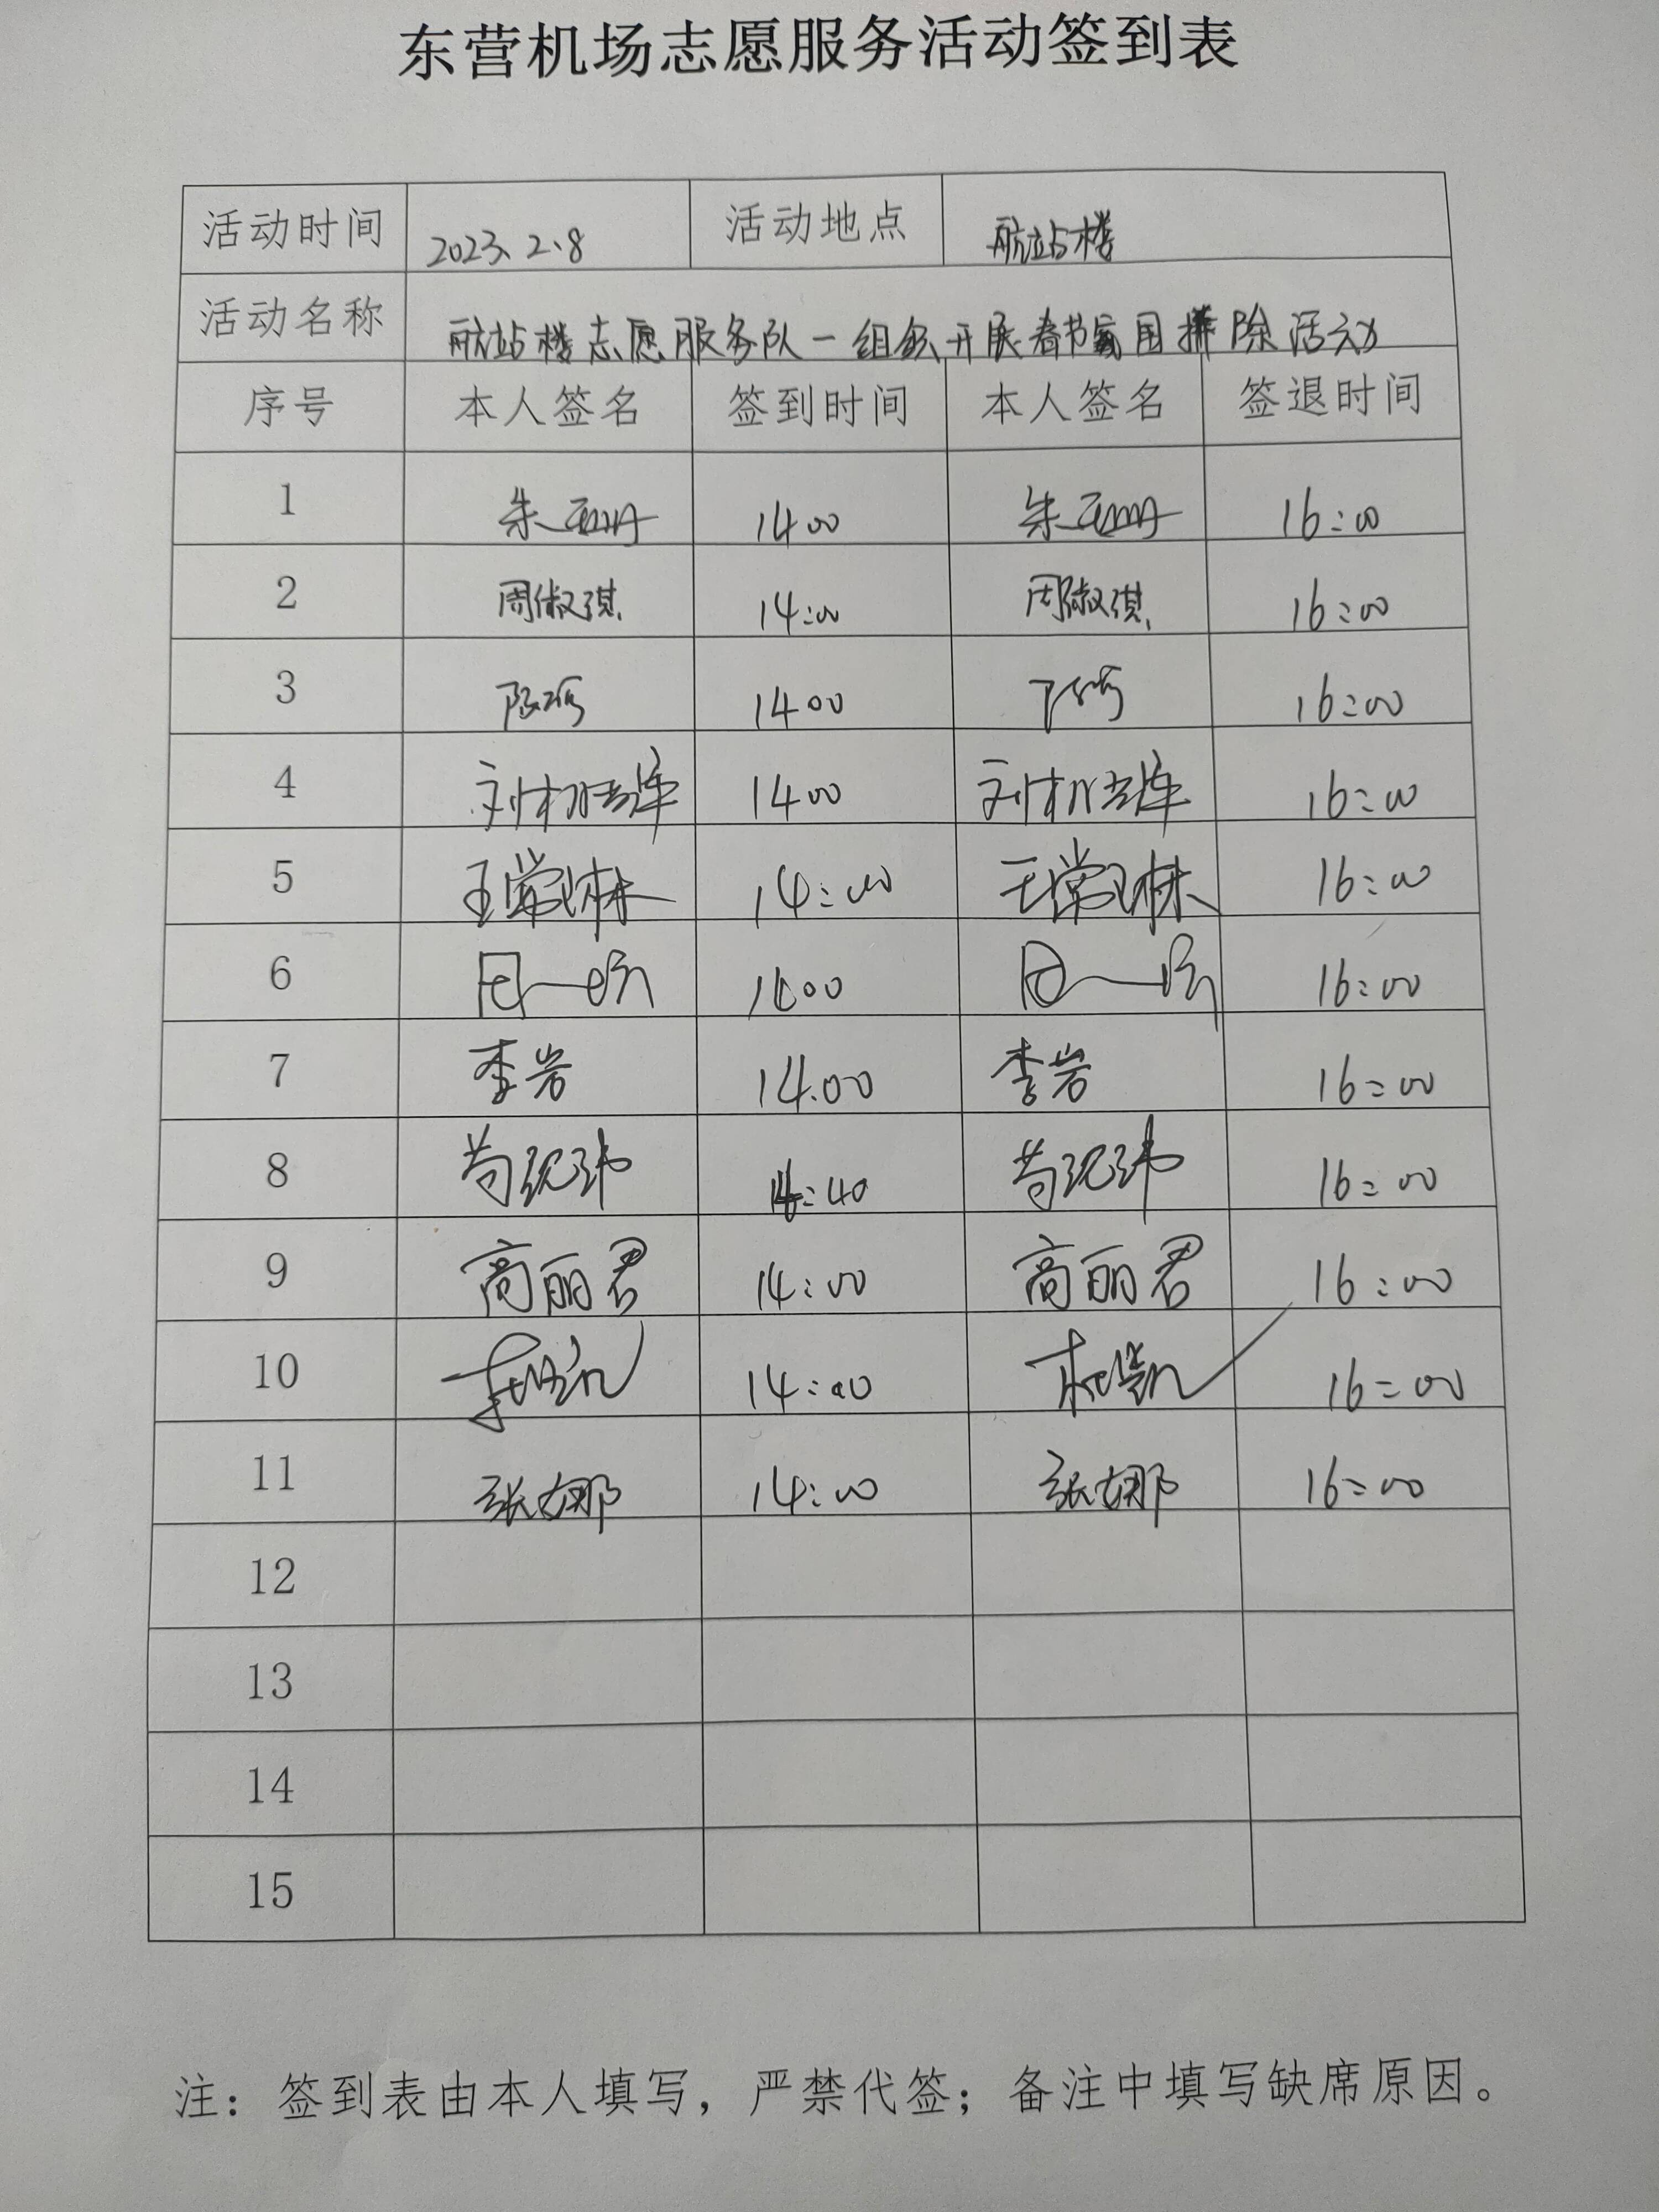 东营机场志愿服务活动签到表
活动时间 2023、2.8 活动地点 航站楼
活动名称 航站楼志愿服务队一组织开展春节氛围拆除活动
序号 本人签名 签到时间 本人签名 签退时间
1 朱 1400 朱 16:00
2 周淑琪 14:00 周淑琪 16:00
3 1400 16:00
4 刘 1400 刘 16:00
5 王常琳 14:00 王常琳 16:00
6 1400 16:00
7 李岩 14.00 李岩 16:00
8 苟 玮 14:40 苟 玮 16:00
9 高丽君 14:00 高丽君 16:00
10 14:00 16:00
11 张娜 14:00 张娜 16:00
12
13
14
15
注：签到表由本人填写，严禁代签；备注中填写缺席原因。